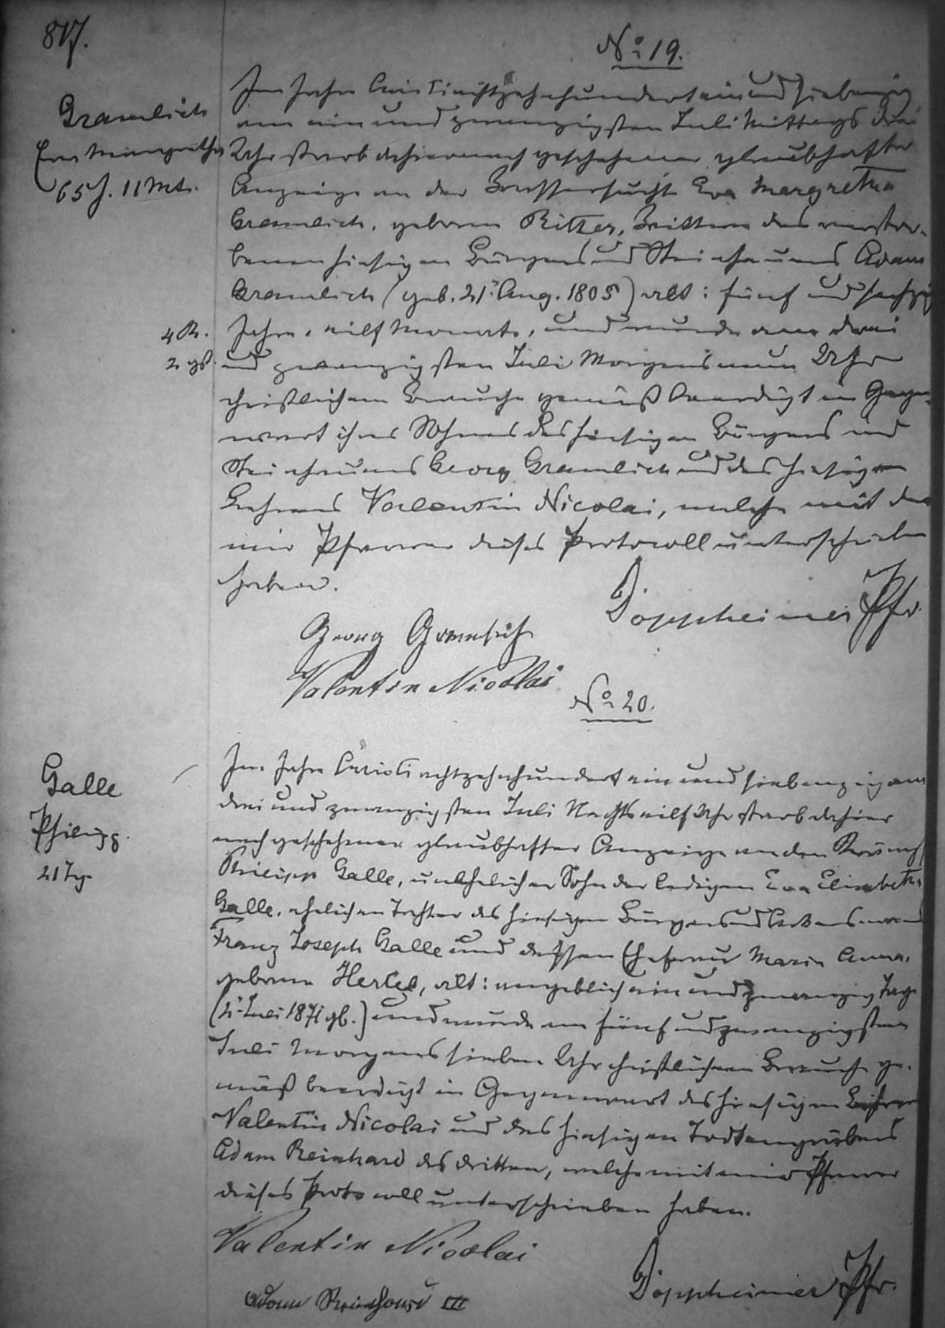 817.
No 19.
Gramlich
Eva Margretha
65 J. 11 Mt.
Im Jahre Christi achtzehnhundert ein und siebenzig
am ein und zwanzigsten Juli Mittags drei
Uhr starb dahier nach geschehener glaubhafter
Anzeige an der Wassersucht Eva Margretha
Gramlich, geborene Ritter, Wittwe des verstor-
benen hiesigen Bürgers und Steinhauers Adam
Gramlich (geb. 21. Aug. 1805) alt: fünf und sechzig
4 R.
Jahre, eilf Monate, und wurde am drei
und zwanzigsten Juli Morgens neun Uhr
christlichem Brauche gemäß beerdigt in Gegen-
wart ihres Sohnes des hiesigen Bürgers und
Steinhauers Georg Gramlich und des hiesigen
Lehrers Valentin Nicolai, welche mit
mir Pfarrer dieses Protocoll unterschrieben
haben.
Doppheimer Pfr.
Georg Gramlich
Valentin Nicolai
No 20.
Galle
Philipp.
21 Tg.
Im Jahre Christi achtzehnhundert ein und siebenzig am
drei und zwanzigsten Juli Nachts eilf Uhr starb dahier
nach geschehener glaubhafter Anzeige an den
Philipp Galle, unehelicher Sohn der ledigen Eva Elisabetha
Galle, ehelichen Tochter des hiesigen Bürgers und
Franz Joseph Galle und dessen Ehefrau Maria Anna,
geborene Hertel, alt: angeblich ein und zwanzig Tage
(2. Juli 1871 gb.) und wurde am fünf und zwanzigsten
Juli Morgens sieben Uhr christlichem Brauche ge-
mäß beerdigt in Gegenwart des hiesigen Lehrers
Valentin Nicolai und des hiesigen Todtengräbers
Adam Reinhard des dritten, welche mit mir Pfarrer
dieses Protocoll unterschrieben haben.
Valentin Nicolai
Doppheimer Pfr.
Adam Reinhard III